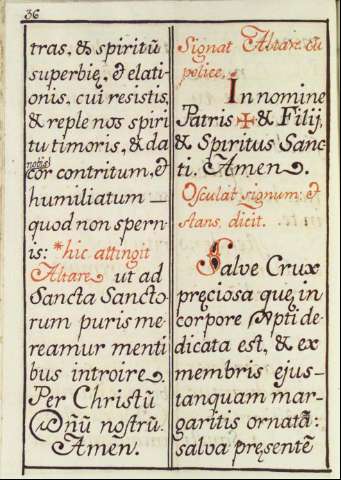 36
tras, & spiritũ
superbię, & elati-
onis, cui resistis,
& reple nos spiri
tu timoris, & da
nobis
cor contritum, et
humiliatum —
quod non spern-
is: *hic attingit
Altare ut ad
Sancta Sancto
rum puris me-
reamur menti
bus introire.
Per Christũ
Dñũ nostrũ.
Amen.
Signat Altare cũ
police.
In nomine
Patris ✠ & Filij,
& Spiritus Sanc-
ti. Amen.
Osculat signum: et
stans, dicit.
Salve Crux
pręciosa quę, in
corpore Xpti de-
dicata est, & ex
membris ejus-
tanquam mar-
garitis ornatã:
salva pręsentẽ